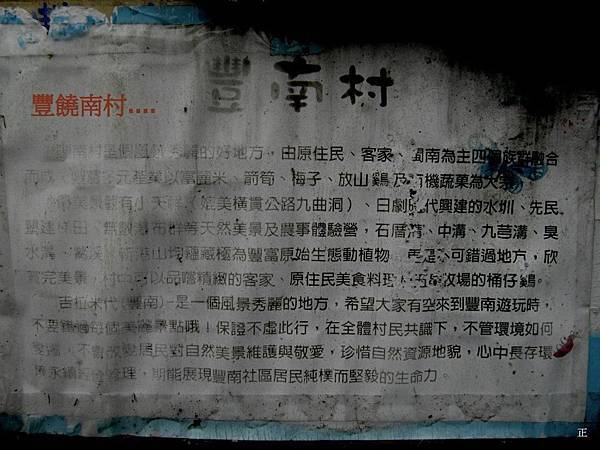 豐南村
豐饒南村....
南村是個風景秀麗的好地方，由原住民、客家、閩南為主四個族群融合
而成，豐富多元產業以富麗米、箭筍、梅子、放山雞及有機蔬菜為大宗。
美景觀有小天祥（媲美橫貫公路九曲洞）、日劇時代興建的水圳、先民
墾建梯田、無敵瀑布群等天然美景及農事體驗營，石厝溝、中溝、九芎溝、臭
水溝、鱉溪、新港山均蘊藏極為豐富原始生態動植物，再是不可錯過地方，欣
賞完美景，村中可以品嚐精緻的客家、原住民美食料理及牧場的桶仔雞。
吉拉米代(豐南)-是一個風景秀麗的地方，希望大家有空來到豐南遊玩時，
不要錯過每個美麗景點哦！保證不虛此行，在全體村民共識下，不管環境如何
變遷，不會改變居民對自然美景維護與敬愛，珍惜自然資源地貌，心中長存環
境永續經營管理，期能展現豐南社區居民純樸而堅毅的生命力。
正